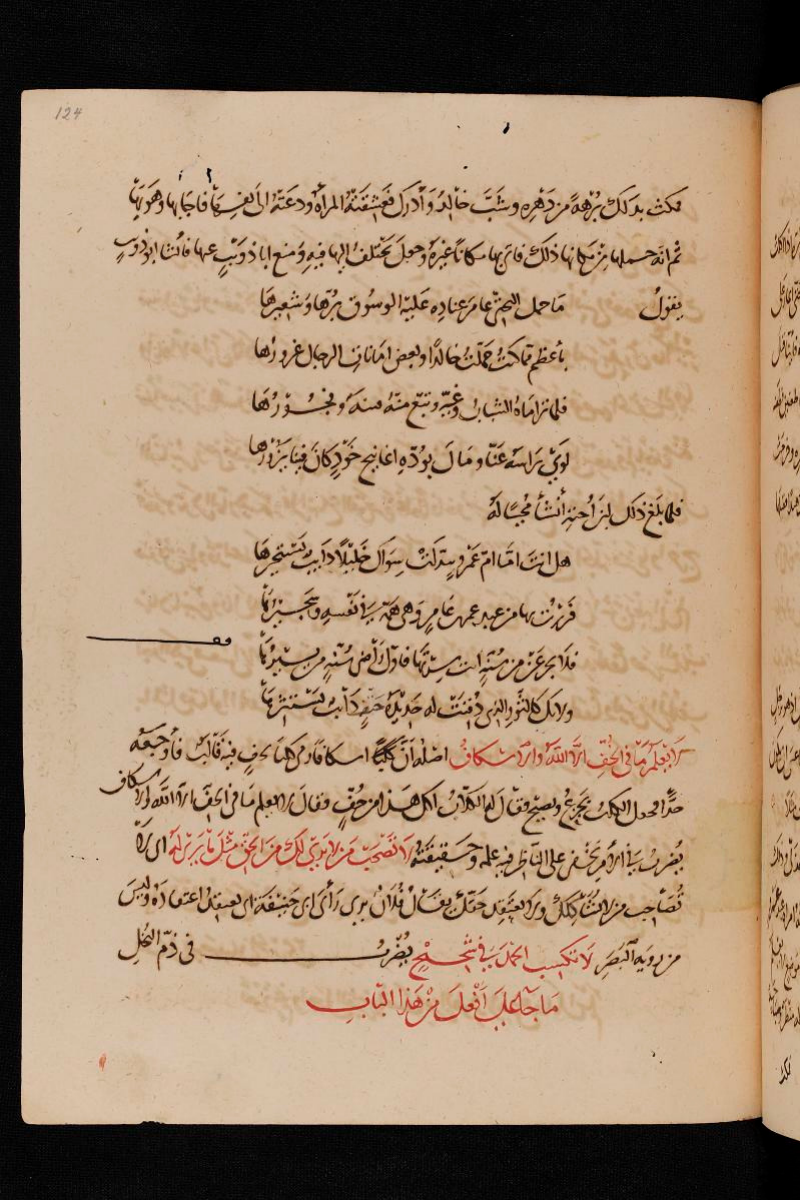 124
فمكث بذلك برهة من دهره وشب خالد وأدرك فعشقته المرأة ودعته الى نفسها فاجابها وهويها
ثم انه حملها من مكانها ذلك فاتى بها مكانا غيره وجعل يختلف اليها فيه ومنع ابا ذويب عنها فانشا ابو ذويب
يقول ما حمل البختي عام غياره عليه الوسوق برها وشعيرها
بأعظم مما كنت حملت خالدا وبعض امانات الرجال غرورها
فلما تراماه الشباب وغيه وتتبع منه فتنة وفجورها
لوى راسه عنا ومال بوده اغانيج خود كان فينا يزورها
فلما بلغ ذلك ابن اخته أنشأ مجيبا له
هل انت اما ام عمرو تبدلت سواك خليلا دايبا تستخيرها
فررت بها من عند عمرو بن عامر وهي همه في نفسه وسجيرها
فلا تجزعن من سنة انت سرتها فاول راض سنة من يسيرها
ولا تك كالثور الذي دفنت له حديدة حتف دائبا يستثيرها
لا يعلم ما في الخف الا الله والاسكاف اصله ان كلبا اسكافا رمى كلبا بخف فيه قالب فأوجعه
جدا فجعل الكلب يجزع ويصيح فقال له الكلاب اكل هذا من خف فقال لا يعلم ما في الخف الا الله والاسكاف
يضرب في الامر يخفى على الناظر فيه علمه وحقيقته لا تصحب من لا يرى لك من الحق مثل ما ترى له اى لا
تصاحب من لا يشاكلك ولا يعتقد حقك يقال فلان يرى رأى ابي حنيفة اى يعتقد اعتقاده وليس
من روية البصر لا تكسب الحمد في شحيح يضرب في ذم البخل
ما جاء على أفعل من هذا الباب